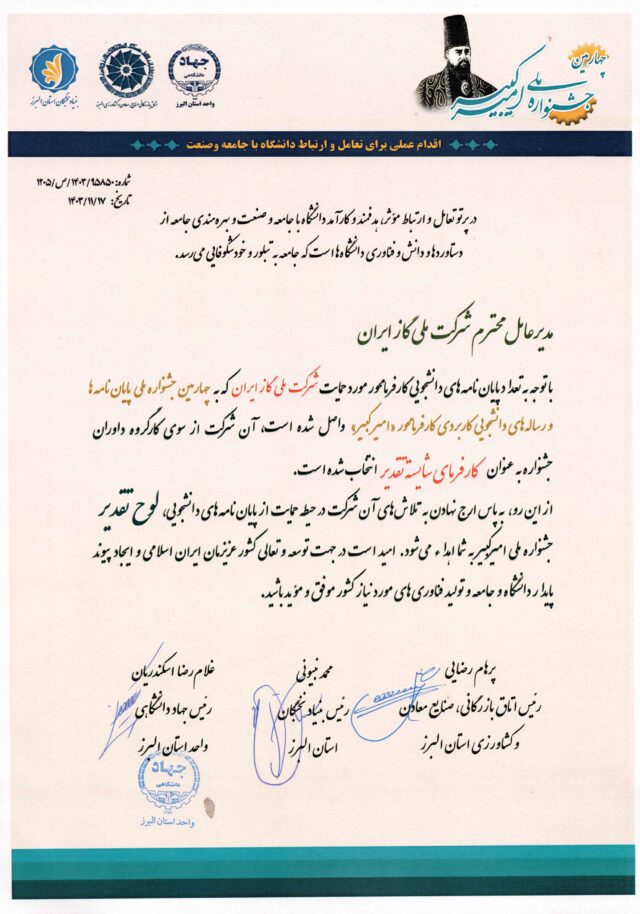 چهارمین
جشنواره ملی
امیرکبیر
جهاد
دانشگاهی
واحد استان البرز
بنیاد نخبگان استان البرز
اقدام عملی برای تعامل و ارتباط دانشگاه با جامعه وصنعت
شماره: ۱۴۰۳/۹۵۸۵۰/ص/۱۲۰۵
تاریخ: ۱۴۰۳/۱۱/۱۷
در پرتو تعامل و ارتباط مؤثر، هدفمند و کارآمد دانشگاه با جامعه و صنعت و بهره مندی جامعه از
دستاوردها و دانش و فناوری دانشگاه ها است که جامعه به تبلور و خودشکوفایی می رسد.
مدیرعامل محترم شرکت ملی گاز ایران
با توجه به تعداد پایان نامه های دانشجویی کارفرما محور مورد حمایت شرکت ملی گاز ایران که به چهارمین جشنواره ملی پایان نامه ها
و رساله های دانشجویی کاربردی کارفرما محور «امیرکبیر» واصل شده است، آن شرکت از سوی کارگروه داوران
جشنواره به عنوان کارفرمای شایسته تقدیر انتخاب شده است.
از این رو، به پاس ارج نهادن به تلاش های آن شرکت در حیطه حمایت از پایان نامه های دانشجویی، لوح تقدیر
جشنواره ملی امیرکبیر به شما اهداء می شود. امید است در جهت توسعه و تعالی کشور عزیزمان ایران اسلامی و ایجاد پیوند
پایدار دانشگاه و جامعه و تولید فناوری های مورد نیاز کشور موفق و مؤید باشید.
پرهام رضایی
رئیس اتاق بازرگانی، صنایع معادن
و کشاورزی استان البرز
محمد نبیونی
رئیس بنیاد نخبگان
استان البرز
غلامرضا اسکندریان
رئیس جهاد دانشگاهی
واحد استان البرز
جهاد
دانشگاهی
۱۳۵۹
واحد استان البرز